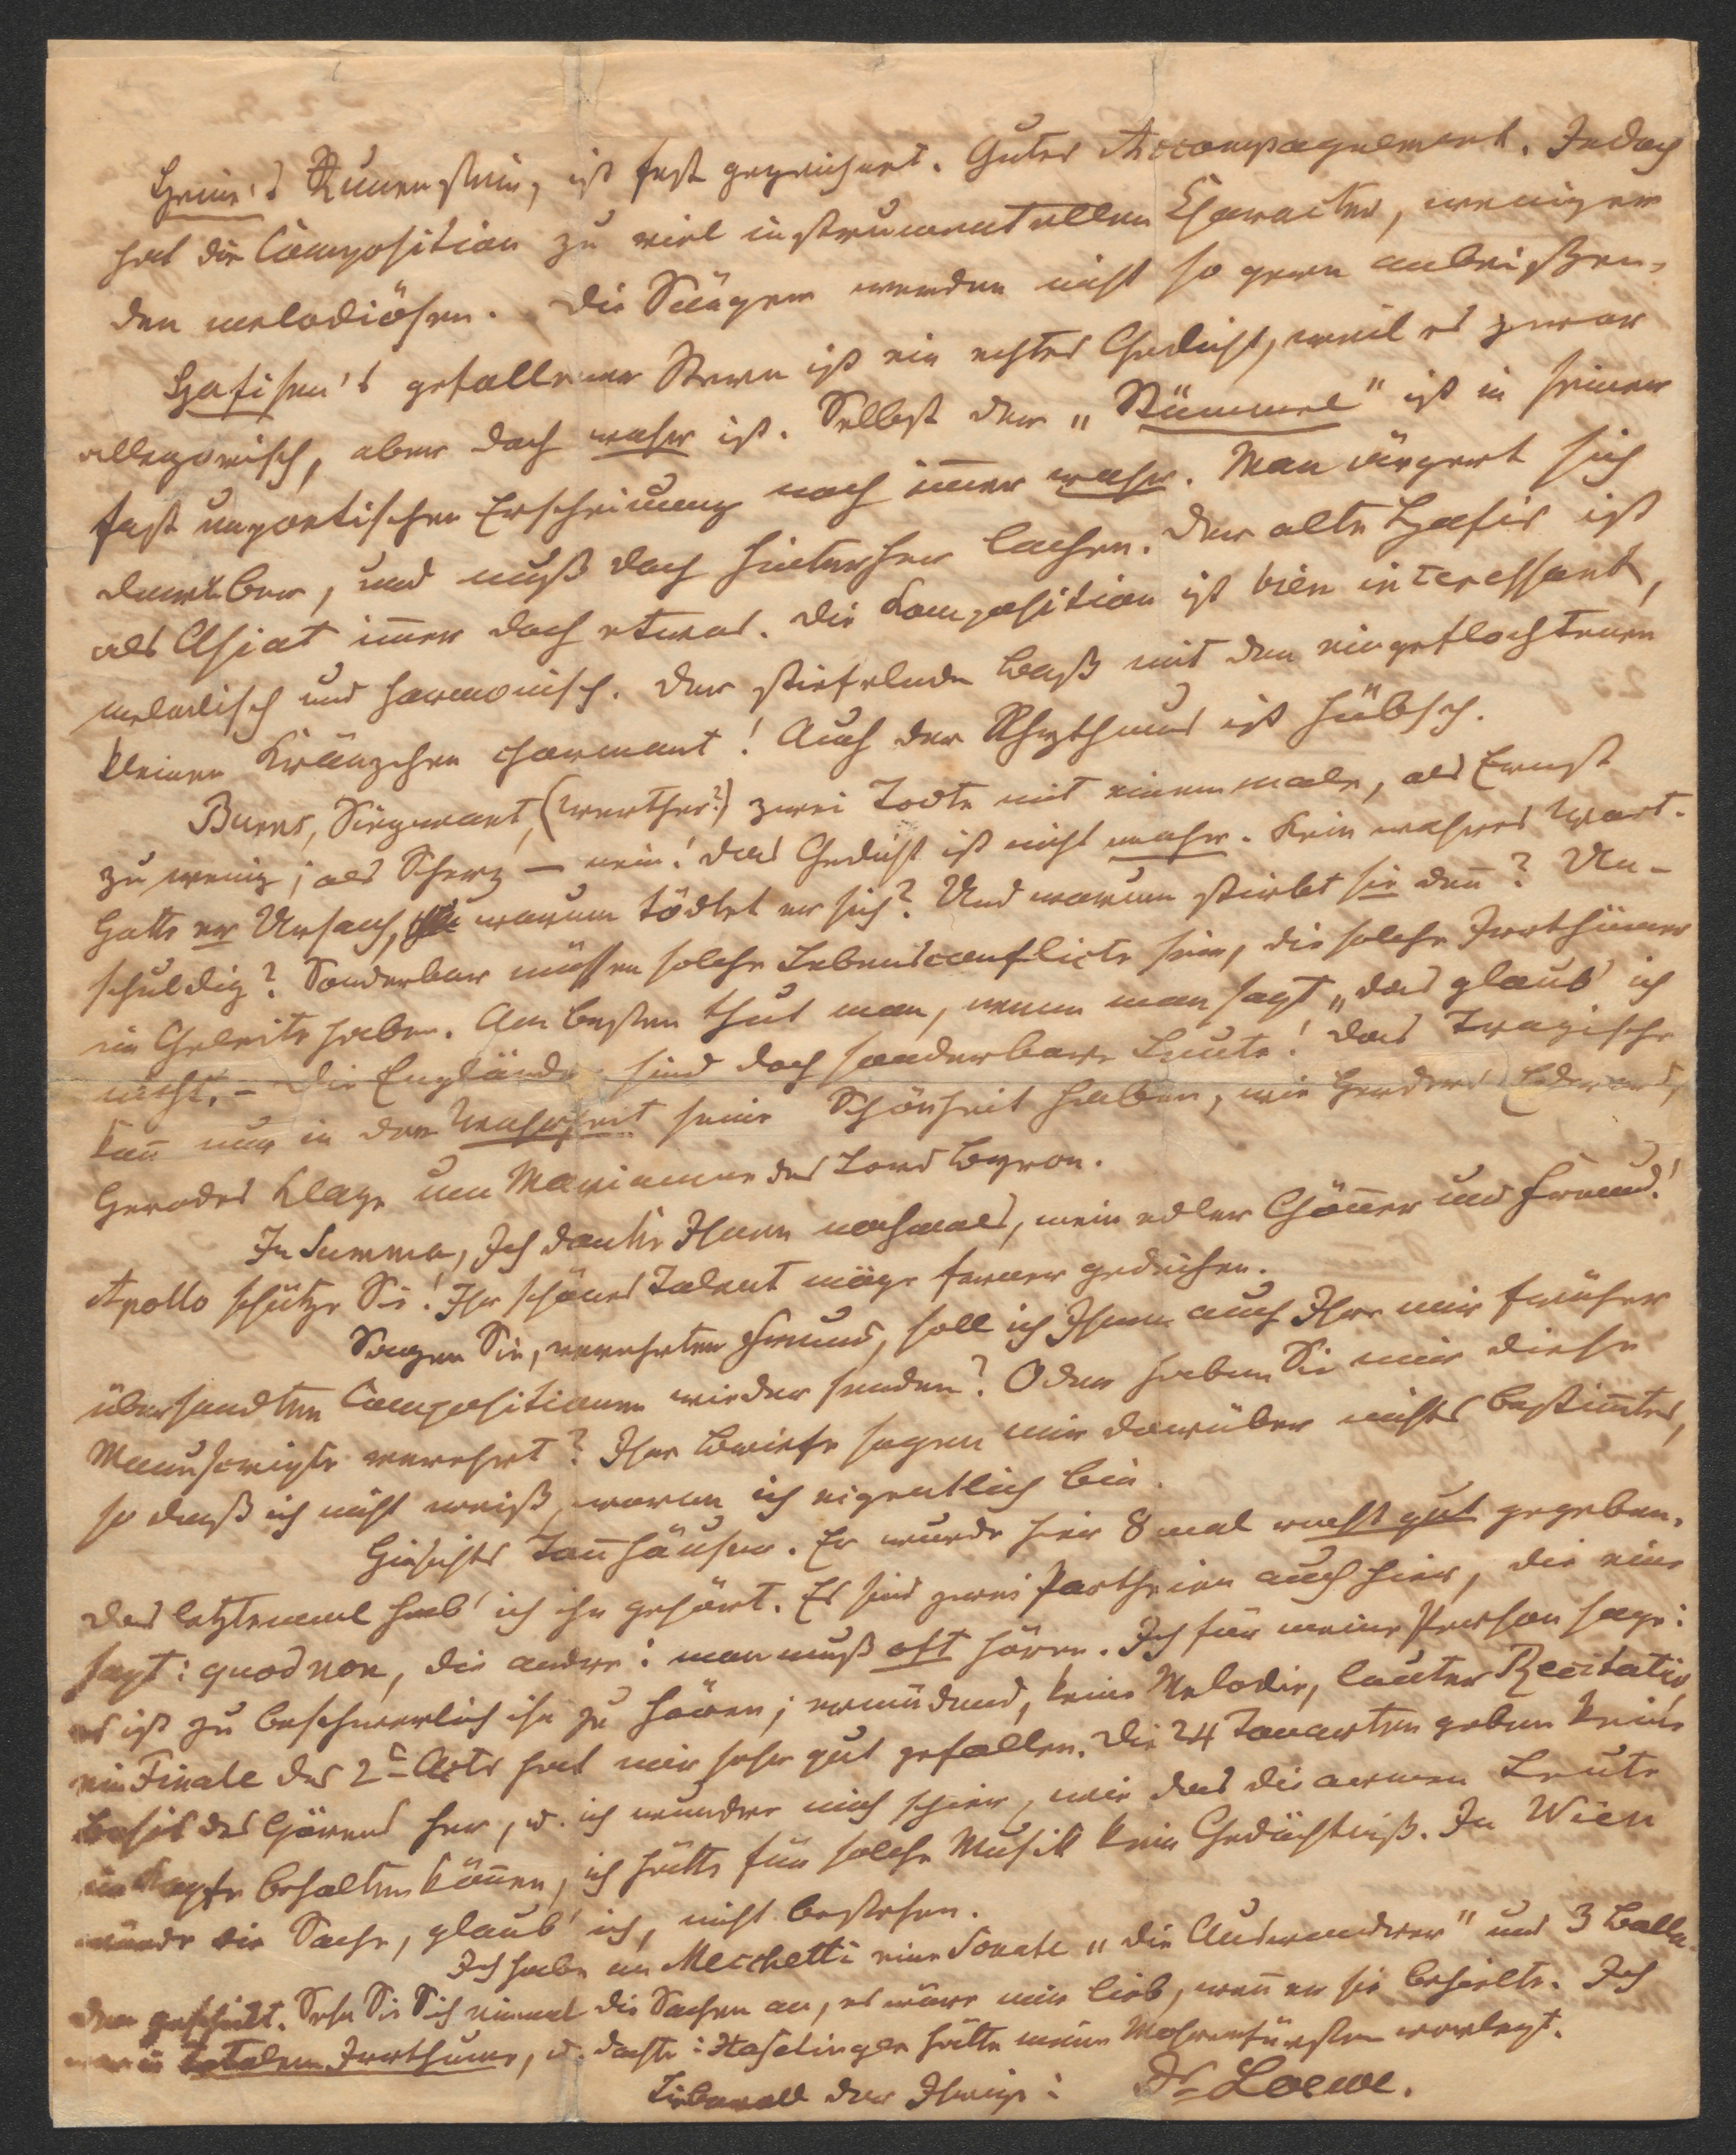 Heine's Runenstein, ist fest gezeichnet. Gutes Accompagnement. Jedoch
hat die Composition zu viel instrumentellen Character, weniger
den melodiösen. Die Sänger werden nicht so gern anbeißen.
Hafisen's gefallener Stern ist ein echtes Gedicht, weil es zwar
allegorisch, aber doch wahr ist. Selbst der „Stümmel" ist in seiner
fast unpoetischen Erscheinung noch im̅er wahr. Man ärgert sich
darüber, und muß doch hinterher lachen. Der alte Hafis ist
als Asiat im̅er doch etwas. Die Composition ist bien interessant,
melodisch und harmonisch. Der stiefelnde Baß mit den eingeflochtenen
kleinen Kränzchen charmant! Auch der Rhythmus ist hübsch.
Burns, Siegwart, (Werther?) zwei Todte mit einemmale, als Ernst
zu wenig; als Scherz — nein! Das Gedicht ist nicht wahr. Kein wahres Wort.
Hatte er Ursach, warum tödtet er sich? Und warum stirbt sie den̅? Un-
schuldig? Sonderbar müssen solche Lebensconflicte sein, die solche Irrthümer
im Geleite haben. Am besten thut man, wenn man sagt „das glaub' ich
nicht. – Die Engländer sind doch sonderbare Leute! Das Tragische
kan̅ nur in der Wahrheit seine Schönheit haben, wie Herders Edward,
Herodes Klage um Mariamne des Lord Byron.
In Summa, Ich danke Ihnen nochmals, mein edler Gön̅er und Freund!
Apollo schütze Sie! Ihr schönes Talent möge ferner gedeihen.
Sagen Sie, verehrter Freund, soll ich Ihnen auch Ihre mir früher
übersandten Compositionen wieder senden? Oder haben Sie mir diese
Manuscripte verehrt? Ihre Briefe sagen mir darüber nichts bestim̅tes,
so daß ich nicht weiß, woran ich eigentlich bin.
Hinsichts Tan̅häuser. Er wurde hier 8 mal recht gut gegeben.
Das letztemal hab' ich ihn gehört. Es sind zwei Partheien auch hier, die eine
sagt: quod non, die andre: man muß oft hören. Ich für meine Person sage:
es ist zu beschwerlich ihn zu hören; ermüdend, keine Melodie, lauter Recitativ,
ein Finale des 2t Acts hat mir sehr gut gefallen. Die 24 Tonarten geben keine
Basis des Hörens her, u. ich wundre mich schier, wie das die armen Leute
im Kopfe behalten kön̅en, ich hätte für solche Musik kein Gedächtniß. In Wien
würde die Sache, glaub' ich, nicht bestehen.
Ich habe an Mecchetti eine Sonate „die Auswandrer" und 3 Balla-
den geschickt. Sehn Sie Sich einmal die Sachen an, es wäre mir lieb, wen̅ er sie behielte. Ich
war in totalem Irrthume, u. dachte: Haslinger hätte meine Mohrenfürsten verlegt.
Überall der Ihrige: Dr Loewe.